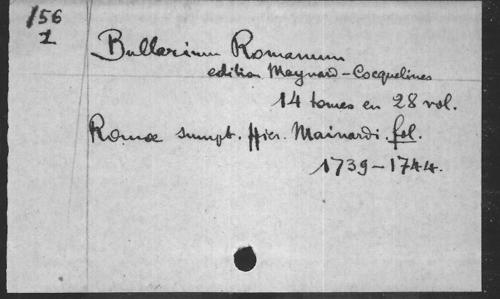 156
1
Bullarium Romanum
edition Maynard-Cocquelines
14 tomes en 28 vol.
Romæ sumpt. Hier. Mainardi. fol.
1739-1744.